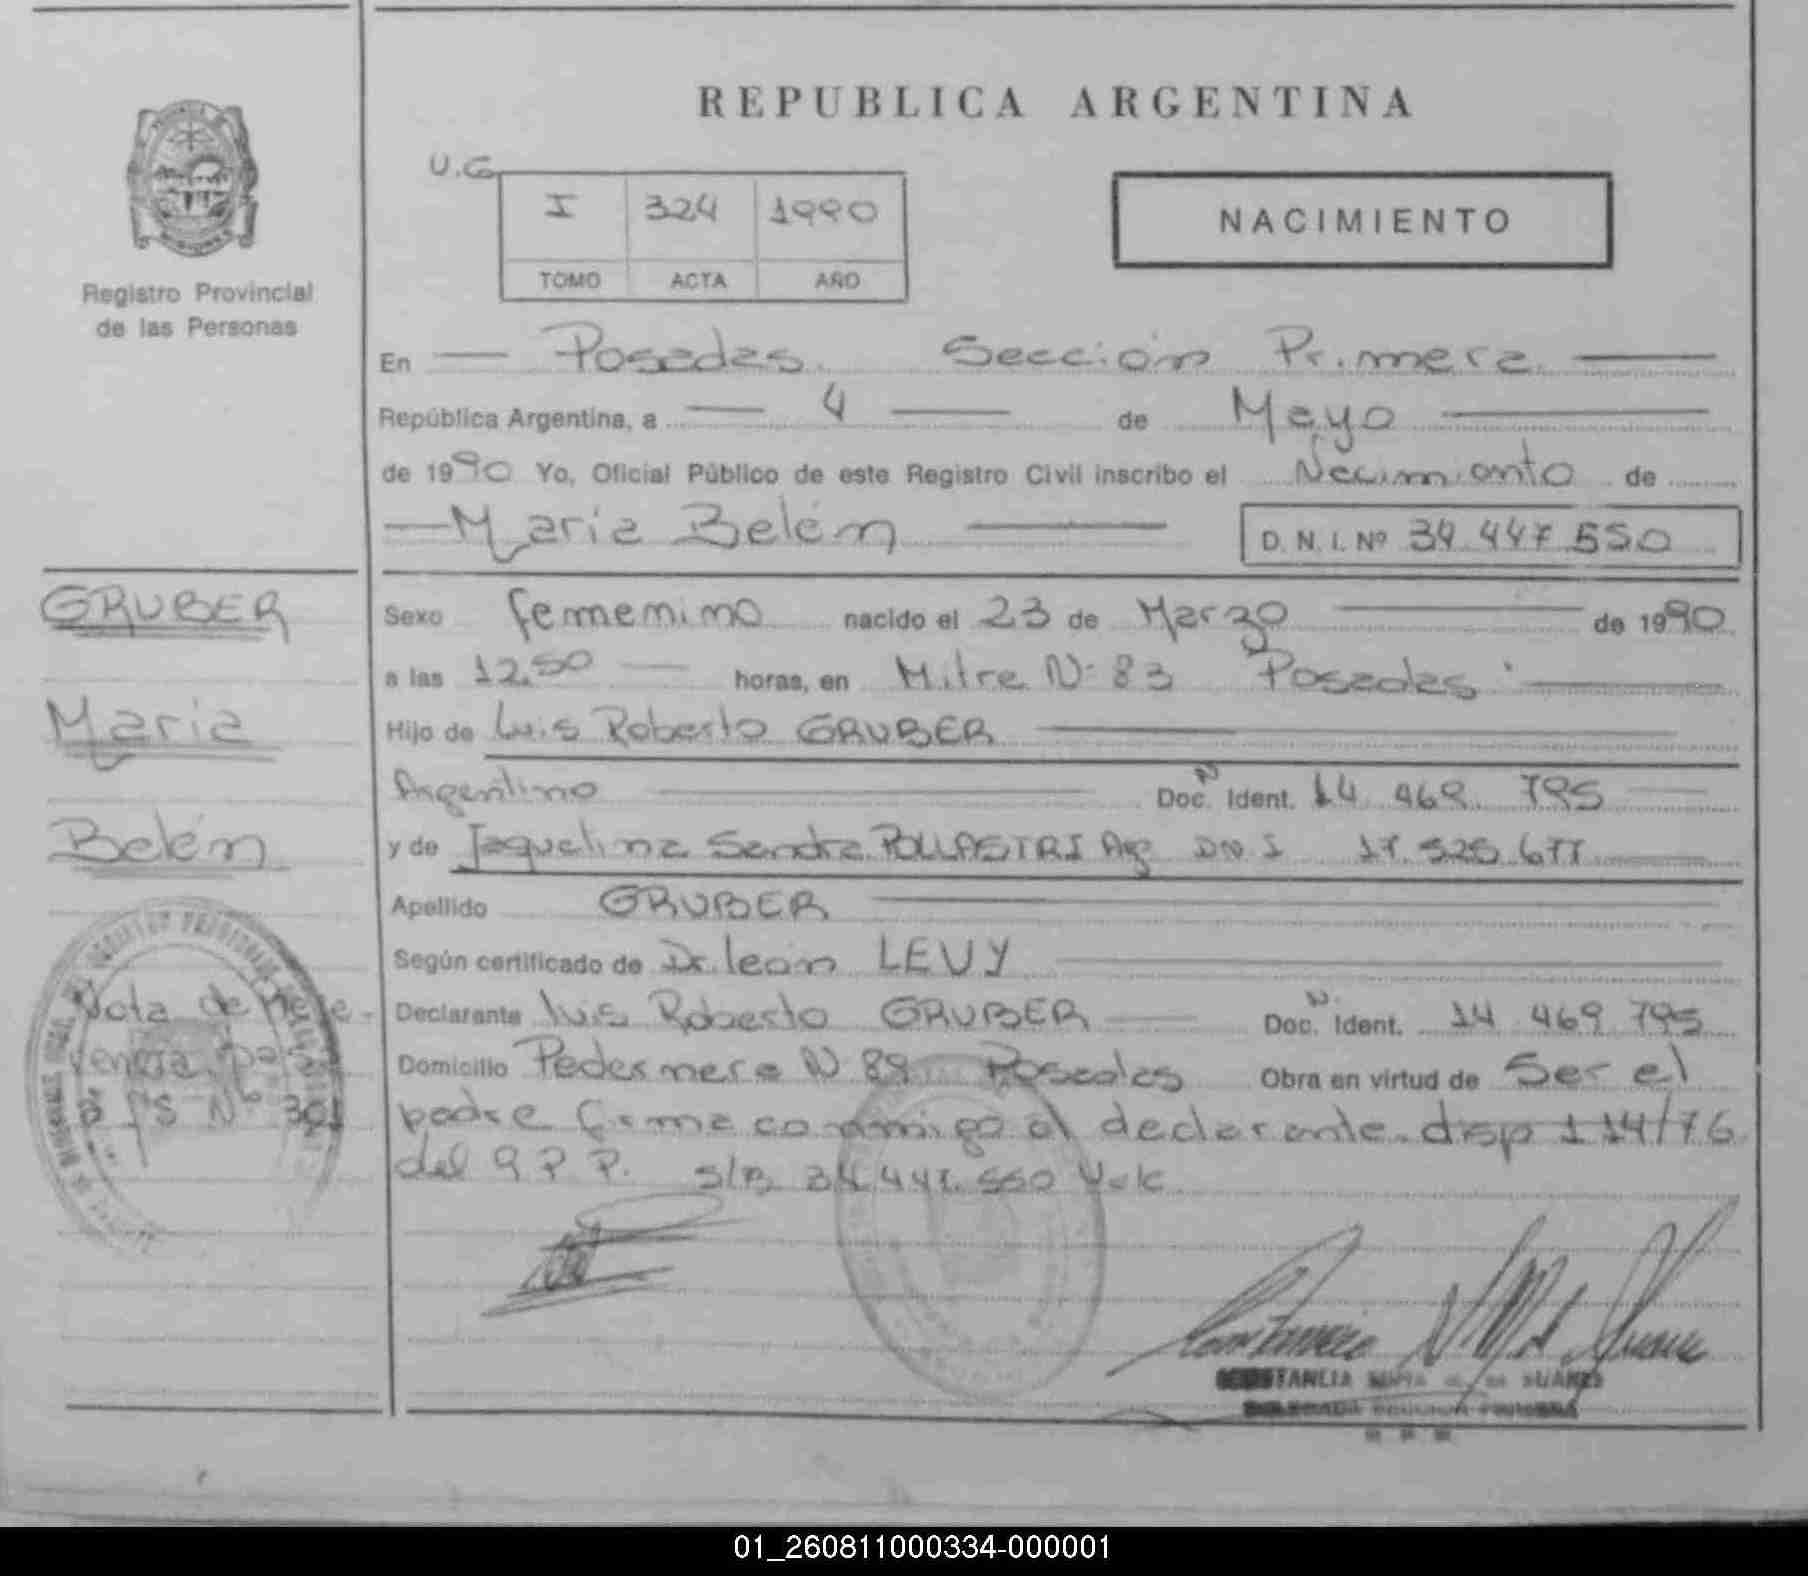 REPUBLICA ARGENTINA
U.G
I 324 1990
TOMO ACTA AÑO
NACIMIENTO
MISIONES
Registro Provincial
de las Personas
En Posadas. Sección Primera
República Argentina, a 4 de Mayo
de 1990 Yo, Oficial Público de este Registro Civil inscribo el Nacimiento de
Maria Belén D. N. I. Nº 34.447.550
GRUBER
Maria
Belén
Sexo femenino nacido el 23 de Marzo de 1990
a las 12,50 horas, en Mitre Nº 83 Posadas
Hijo de Luis Roberto GRUBER
Argentino Doc. N Ident. 14.469.795
y de Jaquelina Sandra POLLASTRI Arg DNI 17.525.677
Apellido GRUBER
Según certificado de Dr. León LEVY
Declarante Luis Roberto GRUBER Doc. N. Ident. 14.469.795
Domicilio Pedernera N 89 Posadas Obra en virtud de Ser el
padre firma conmigo el declarante. disp 114/76
del R.P.P. S/R 34.447.550 Vale
Nota de Refe-
rencia pasa
CONSTANCIA SUAREZ
DELEGADA SECCION PRIMERA
R. P. P.
01_260811000334-000001